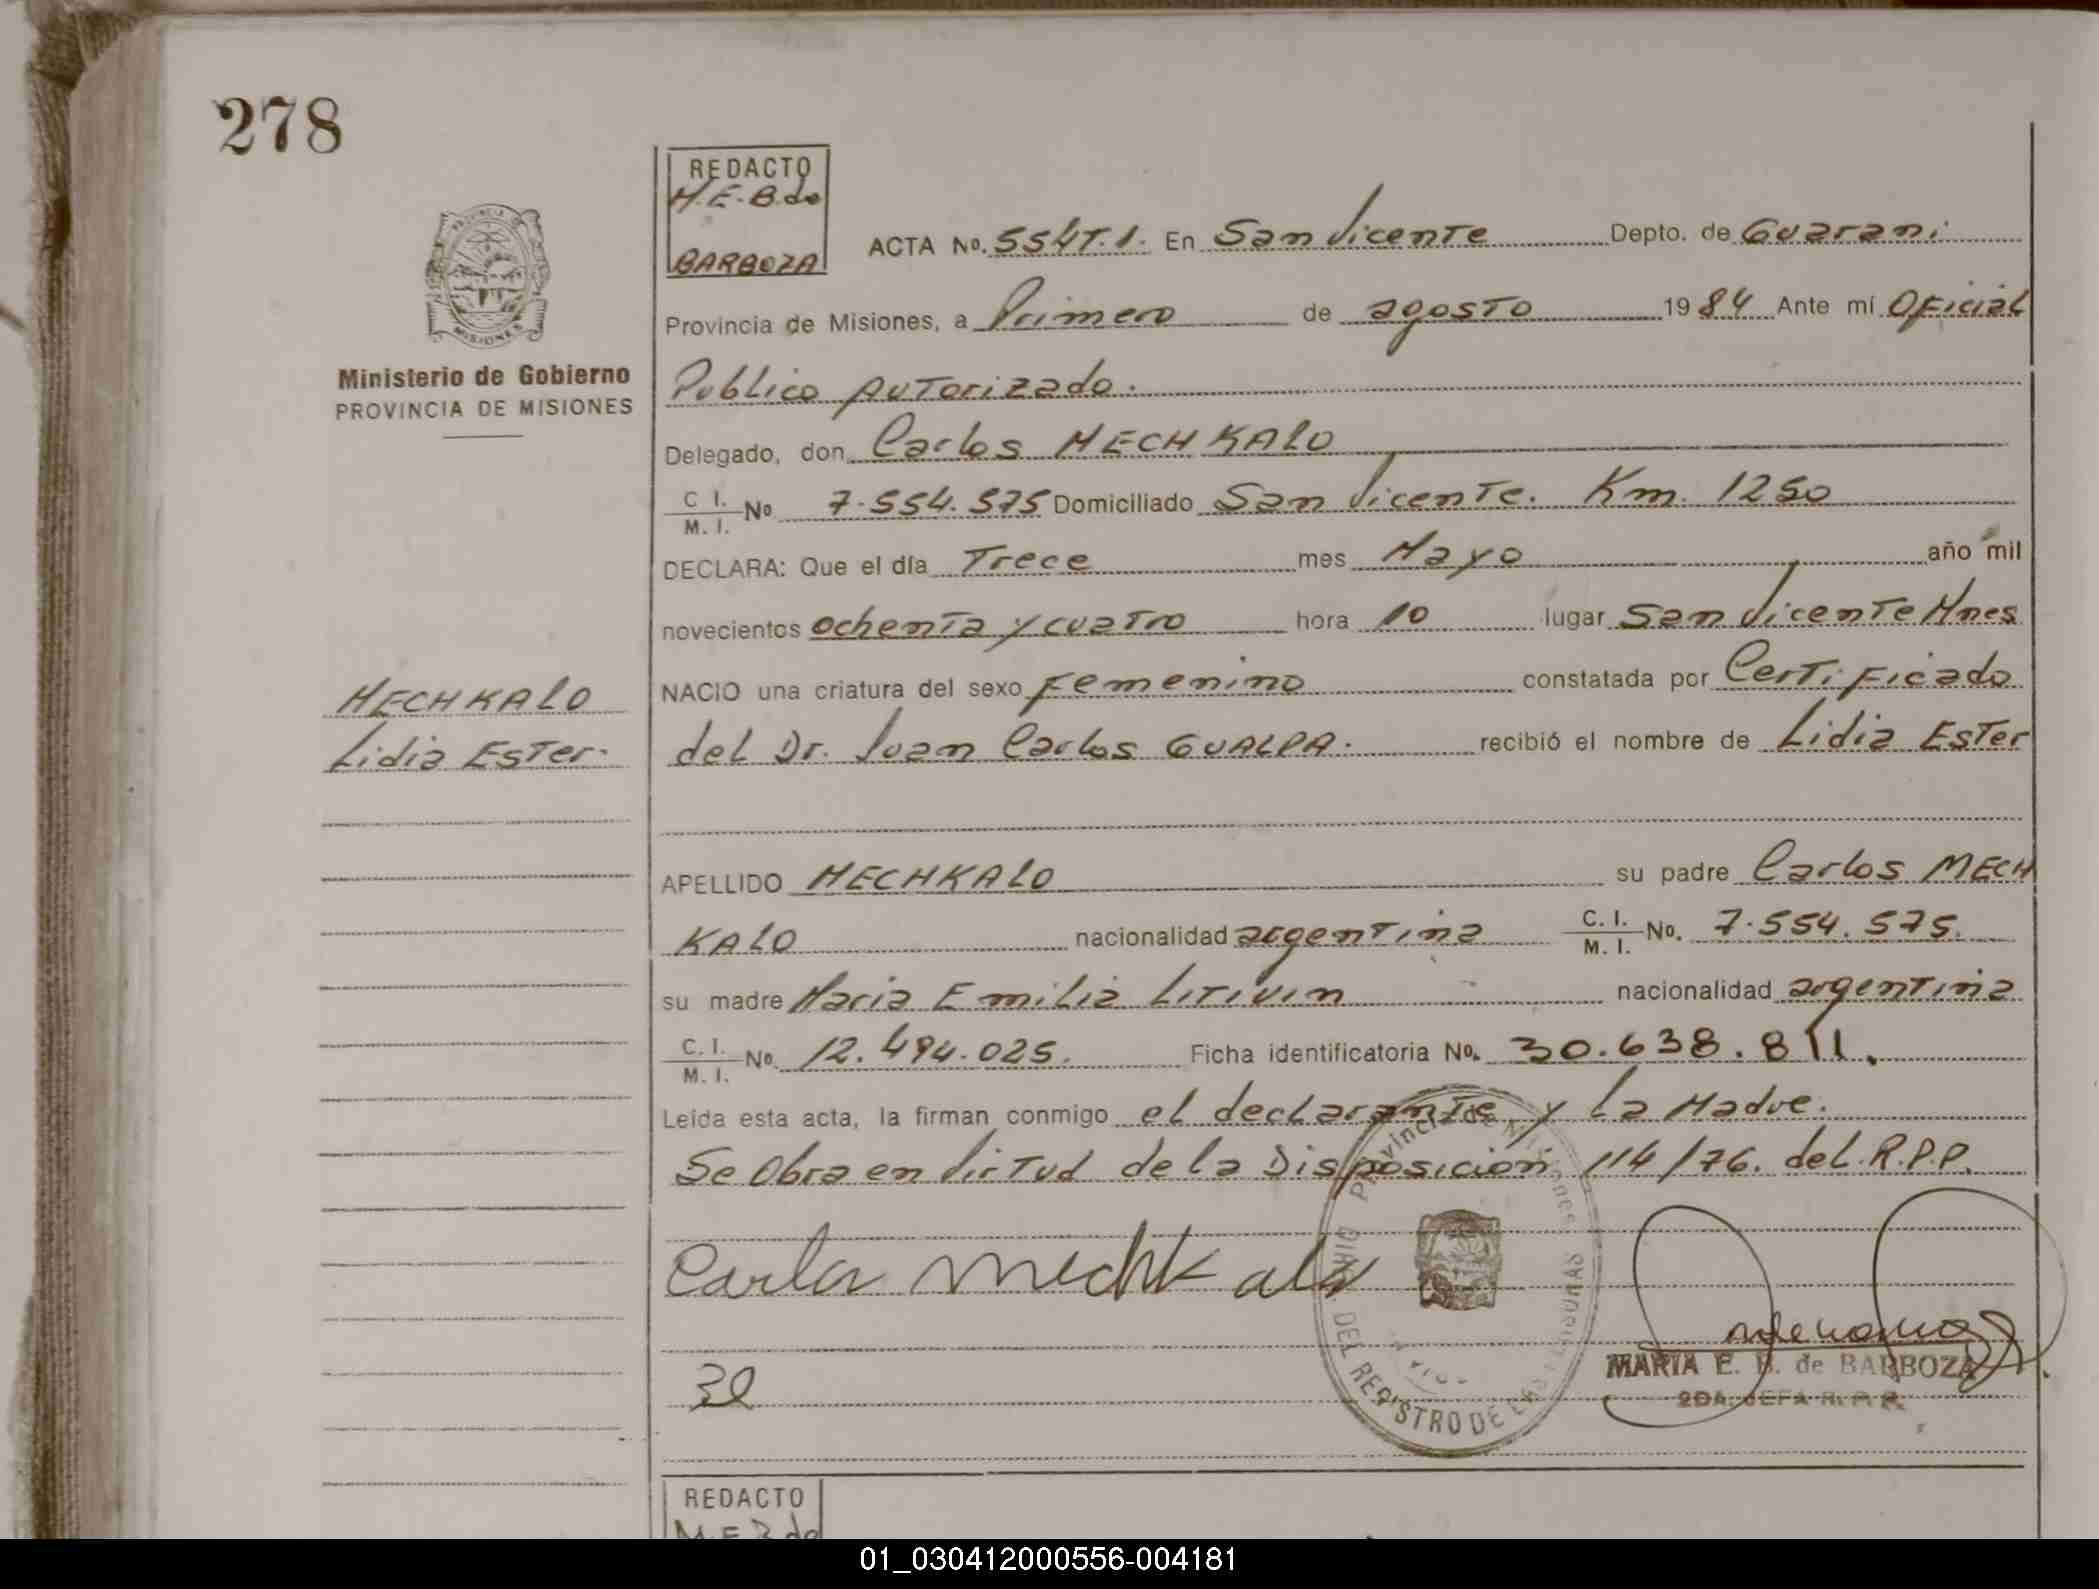 278
PROVINCIA DE
MISIONES
Ministerio de Gobierno
PROVINCIA DE MISIONES
MECHKALO
Lidia Ester.
REDACTO
M.E.B.de
BARBOZA
ACTA No. 554T.1. En San Vicente Depto. de Guarani
Provincia de Misiones, a Primero de agosto 1984 Ante mí Oficial
Publico Autorizado.
Delegado, don Carlos MECHKALO
C I. / M. I. No 7.554.575 Domiciliado San Vicente. Km. 1250
DECLARA: Que el día Trece mes Mayo año mil
novecientos ochenta y cuatro hora 10 lugar San Vicente Mnes
NACIO una criatura del sexo femenino constatada por Certificado
del Dr. Juan Carlos GUALPA. recibió el nombre de Lidia Ester
APELLIDO MECHKALO su padre Carlos MECH
KALO nacionalidad argentina C. I. / M. I. No. 7.554.575.
su madre Maria Emilia Litivin nacionalidad argentina
C. I. / M. I. No. 12.494.025. Ficha identificatoria No. 30.638.811.
Leída esta acta, la firman conmigo el declarante y la Madre.
Se Obra en Virtud de la Disposicion 114/76. del R.P.P.
Carlos Mechkalo
Provincia de Misiones
DEL REGISTRO DE LAS PERSONAS
MARIA E. B. de BARBOZA
2DA. JEFA R. P. P.
REDACTO
M.E.B.de
01_030412000556-004181